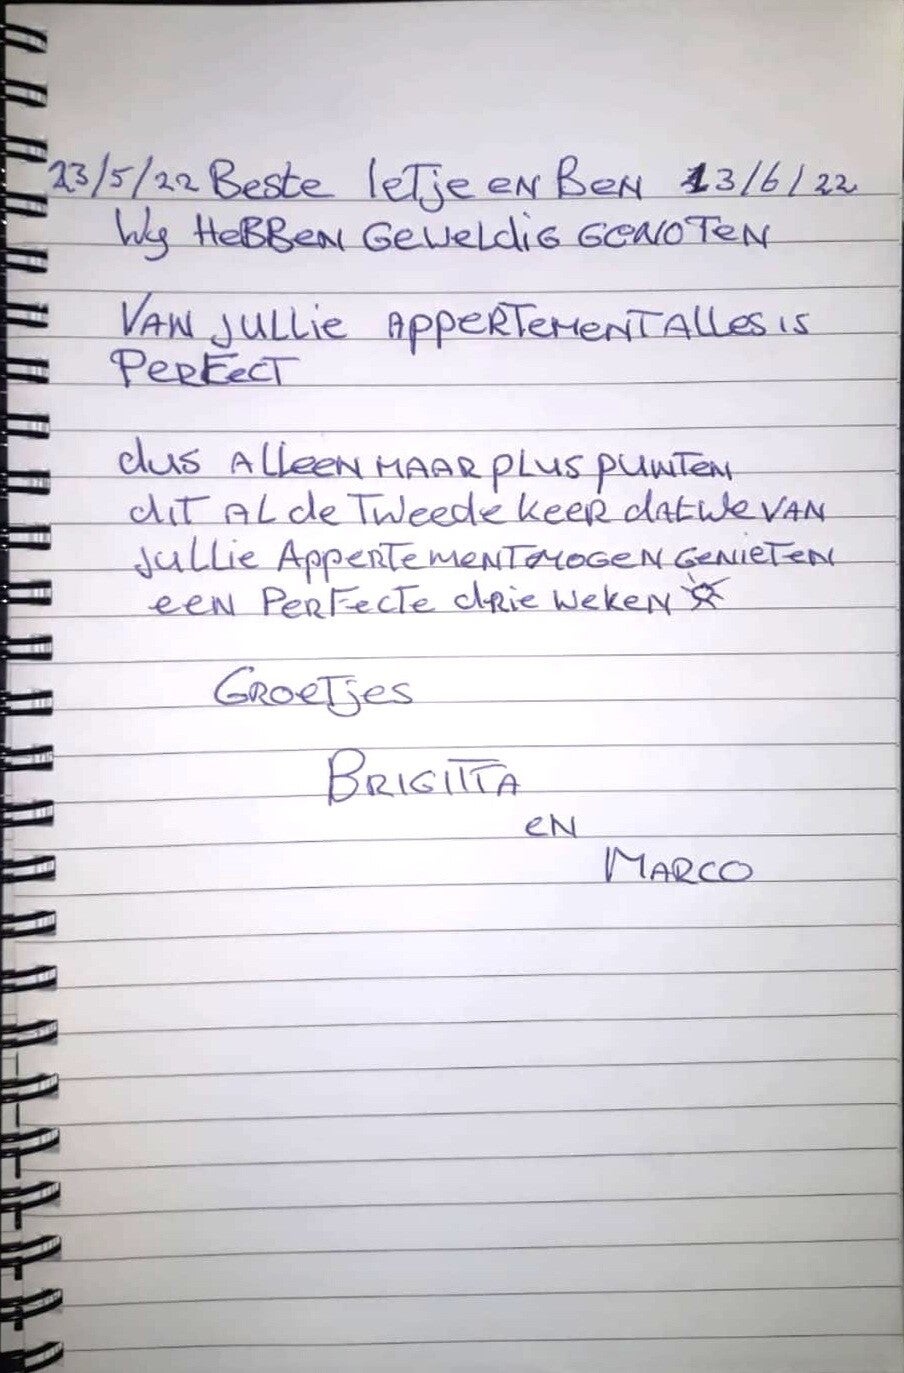 23/5/22 Beste Ietje en Ben 13/6/22
Wij HeBBen GeweLdiG GeNOTeN
VAN juLLie AppeRTeMenT ALLes is
PeRFecT
dus ALLeeN MAAR pLus puNTeN
diT AL de Tweede keeR dat we VAN
juLLie AppeRTeMenT MOGeN GeNieTeN
eeN PeRFecTe dRie weKeN
GRoeTjes
BRiGiTTA
eN
MARCO